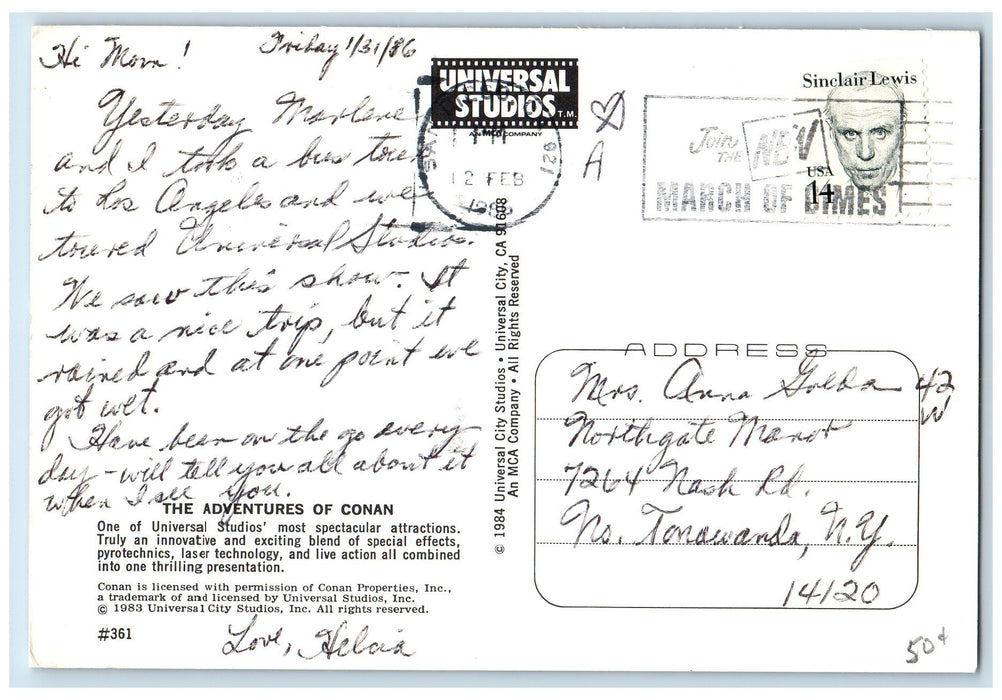 Hi Mom! Friday 1/31/86
Yesterday Marlene
and I took a bus tour
to Los Angeles and we
toured Universal Studios.
We saw this show. It
was a nice trip, but it
rained and at one point we
got wet.
Have been on the go every
day - will tell you all about it
when I see you.
THE ADVENTURES OF CONAN
One of Universal Studios' most spectacular attractions.
Truly an innovative and exciting blend of special effects,
pyrotechnics, laser technology, and live action all combined
into one thrilling presentation.
Conan is licensed with permission of Conan Properties, Inc.,
a trademark of and licensed by Universal Studios, Inc.
© 1983 Universal City Studios, Inc. All rights reserved.
#361
Love,
UNIVERSAL
STUDIOS T.M.
AN MCA COMPANY
921
12 FEB
A
© 1984 Universal City Studios • Universal City, CA 91608
An MCA Company • All Rights Reserved
Join
THE
NEW
MARCH OF DIMES
Sinclair Lewis
USA
14
ADDRESS
Mrs. Anna Golba 42
W
Northgate Manor
7264 Nash Rd.
No. Tonawanda, N.Y.
14120
50¢